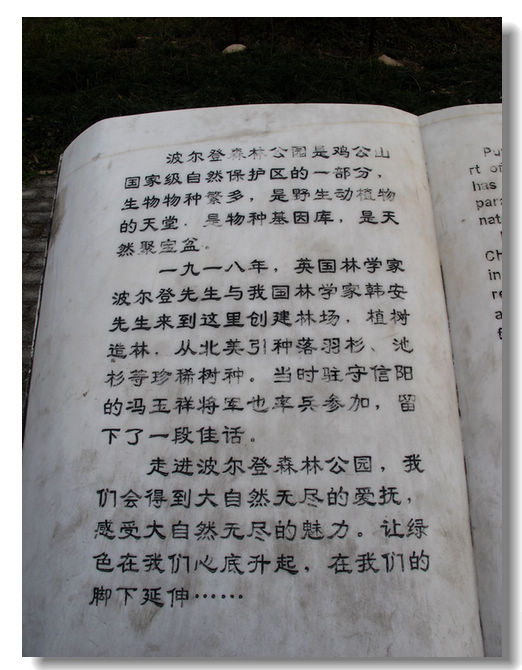 波尔登森林公园是鸡公山
国家级自然保护区的一部分，
生物物种繁多，是野生动植物
的天堂．是物种基因库，是天
然聚宝盆。
一九一八年，英国林学家
波尔登先生与我国林学家韩安
先生来到这里创建林场，植树
造林．从北美引种落羽杉、池
杉等珍稀树种。当时驻守信阳
的冯玉祥将军也率兵参加，留
下了一段佳话。
走进波尔登森林公园，我
们会得到大自然无尽的爱抚，
感受大自然无尽的魅力。让绿
色在我们心底升起，在我们的
脚下延伸……
rt of
has
para
nat
Ch
in
re
a